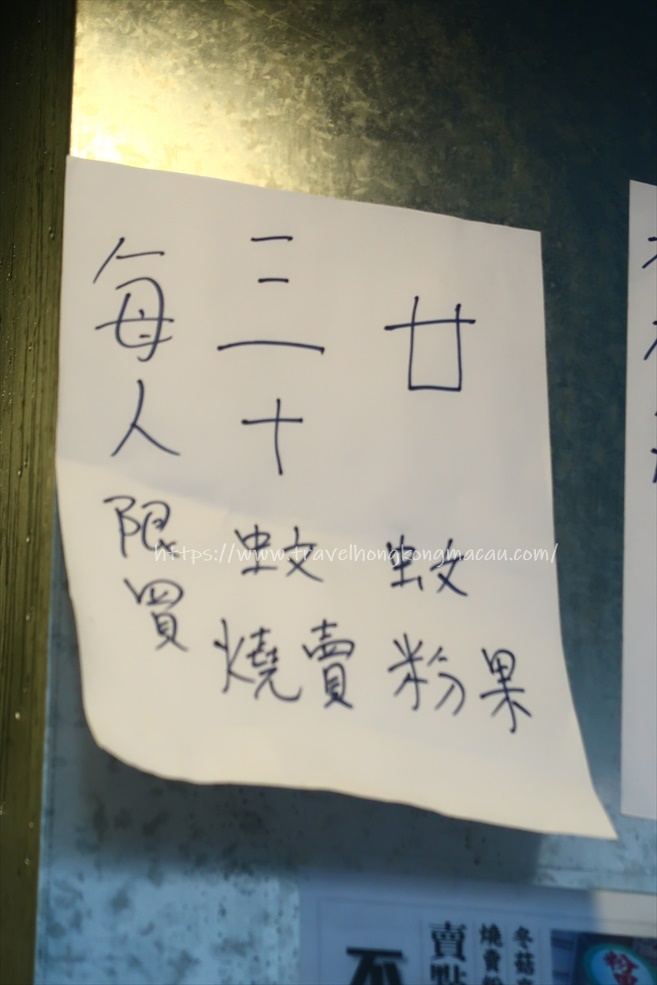 每人限買
三十蚊燒賣
廿蚊粉果
https://www.travelhongkongmacau.com/
冬菇
燒賣粉
賣點
不